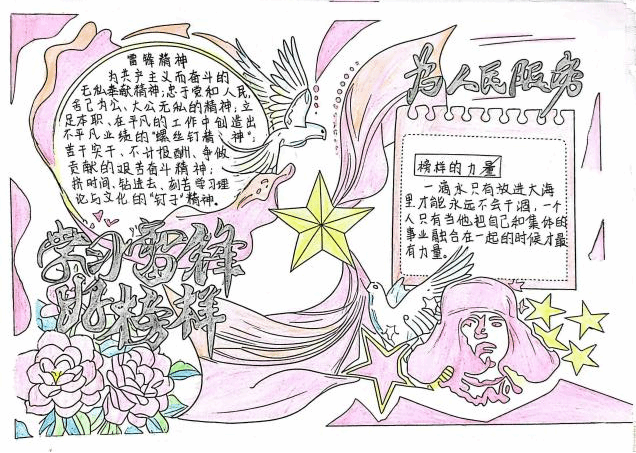 雷锋精神
为共产主义而奋斗的
无私奉献精神;忠于党和人民,
舍己为公、大公无私的精神;立
足本职、在平凡的工作中创造出
不平凡业绩的"螺丝钉精神";
苦干实干、不计报酬、争做
贡献的艰苦奋斗精神;
挤时间、钻进去、刻苦学习理
论与文化的"钉子"精神。
学习雷锋
好榜样
为人民服务
榜样的力量
一滴水只有放进大海
里才能永远不会干涸,一个
人只有当他把自己和集体的
事业融合在一起的时候才最
有力量。